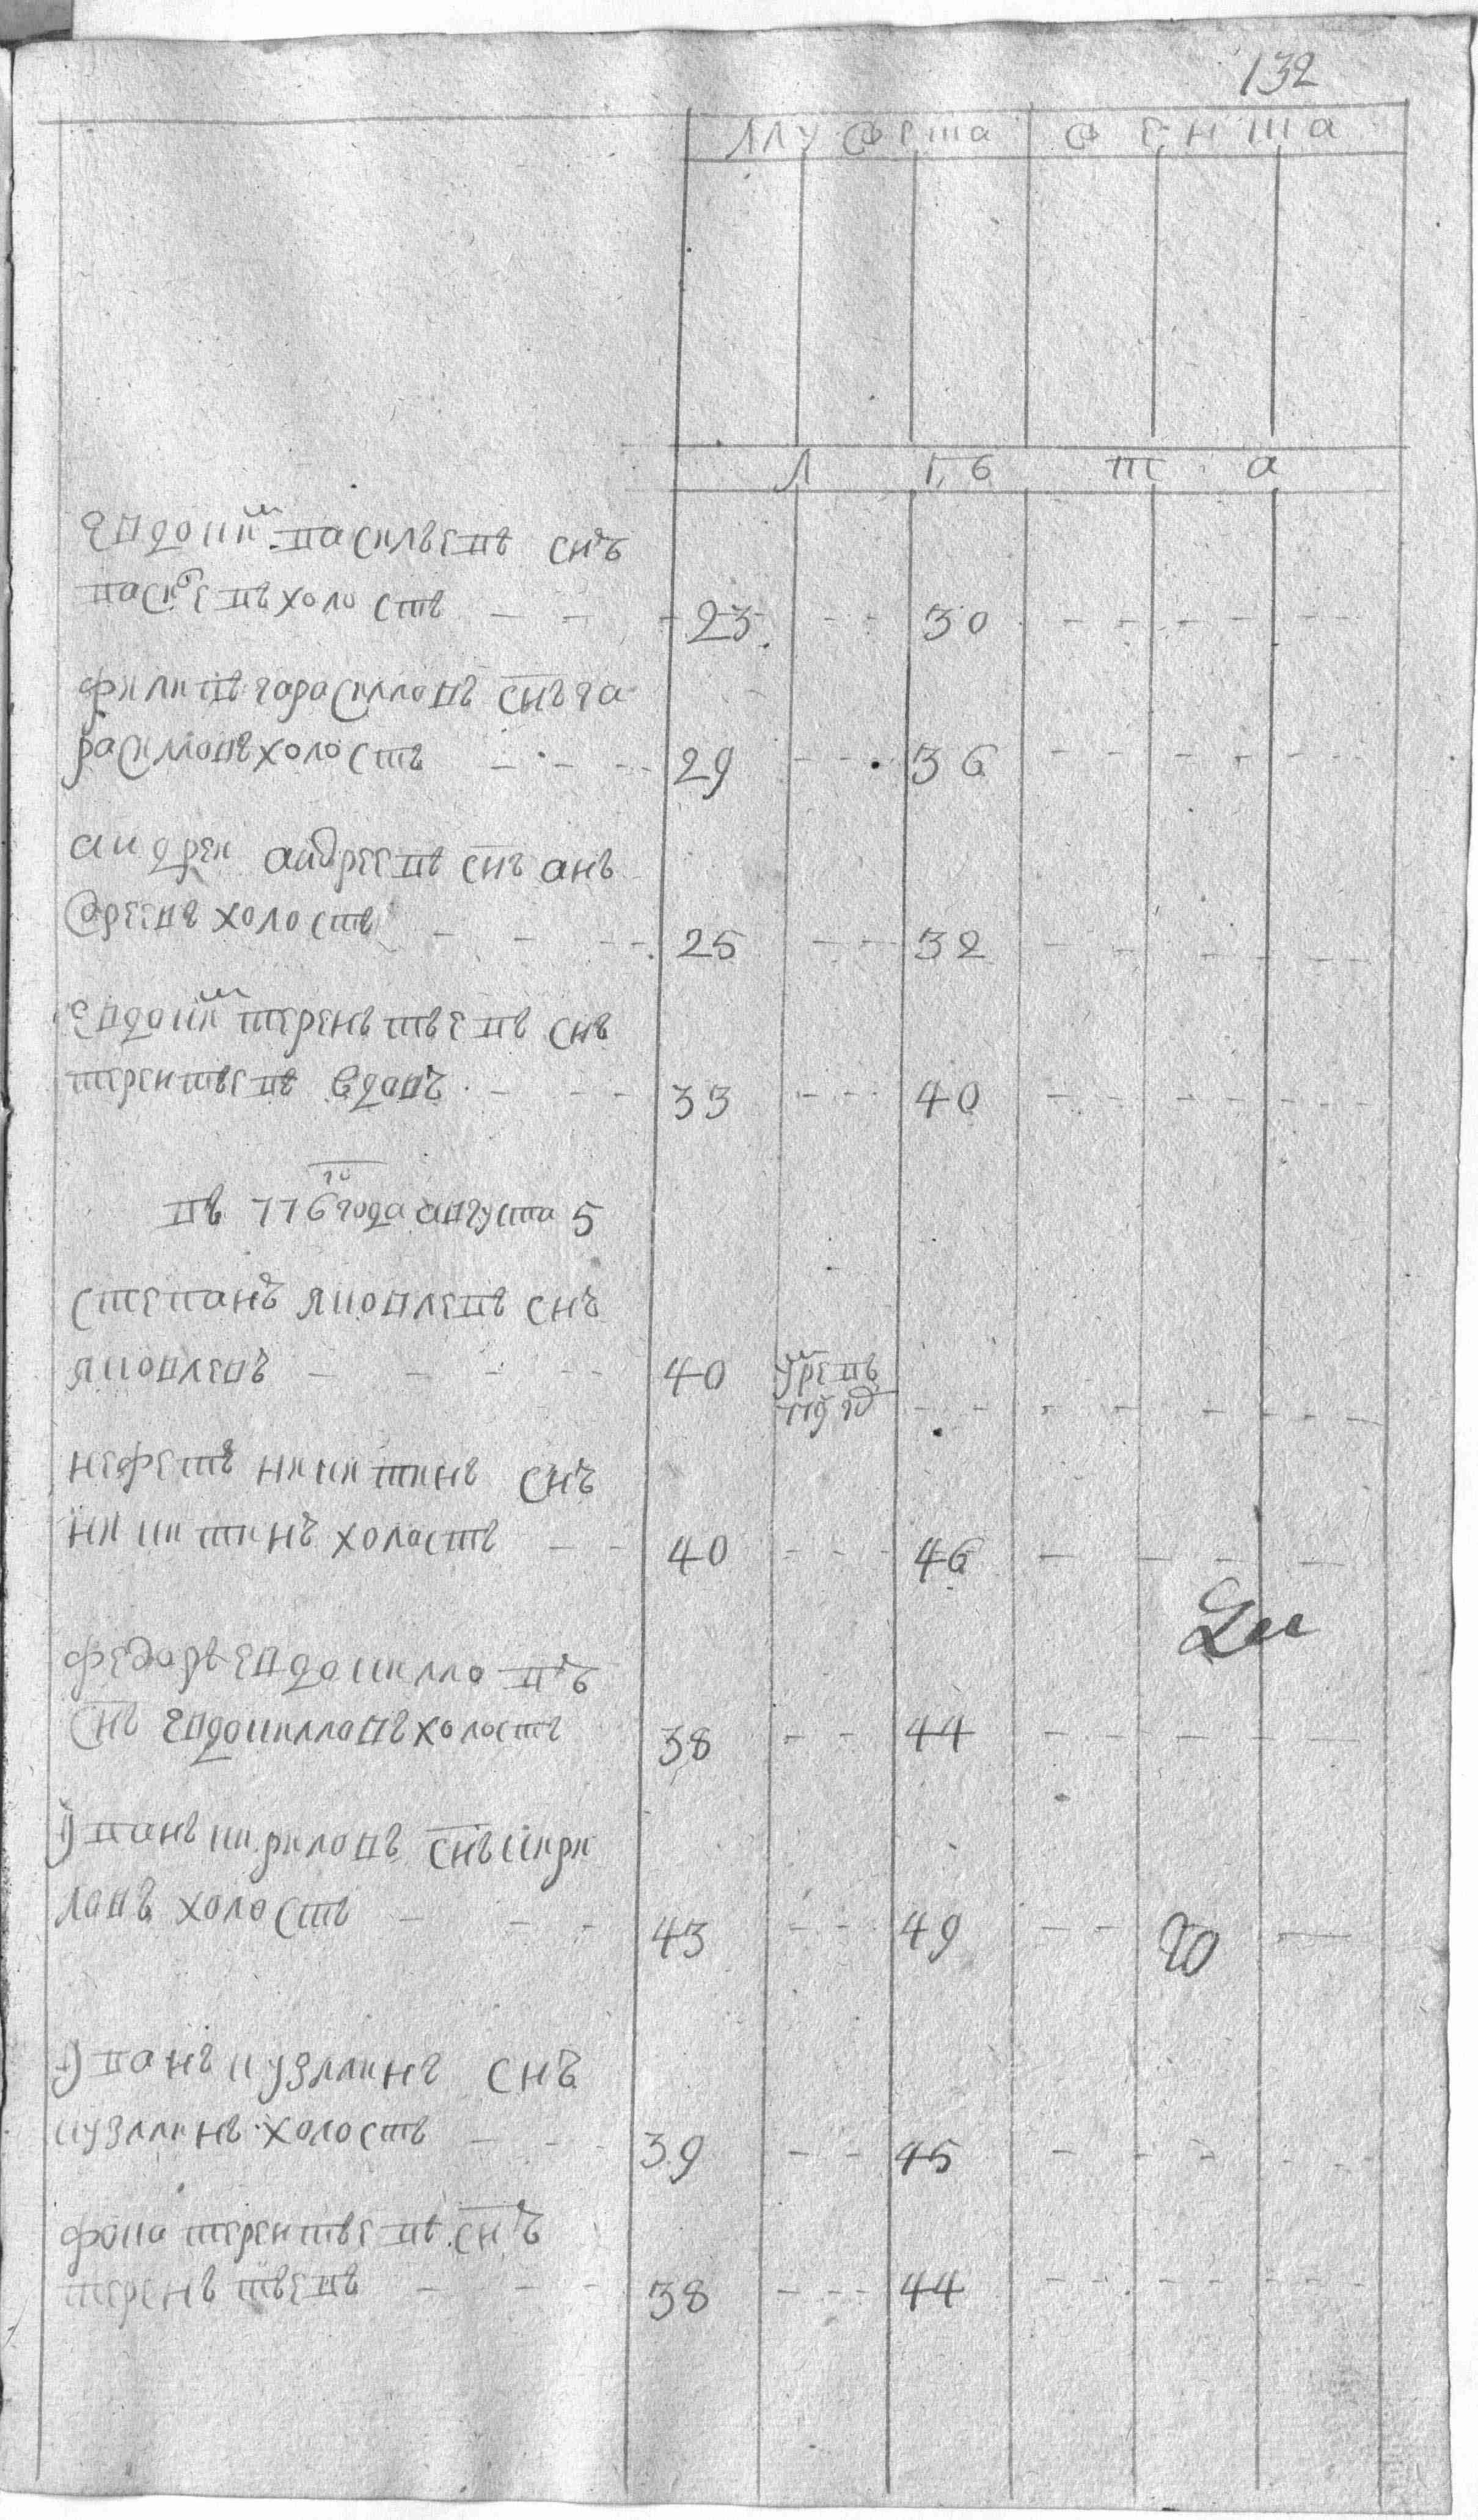 132
мужеска женска
лѣта
евдоким васильевъ снъ
васильевъ холостъ — — — 23 — — 30 — — — — — —
филипъ гарасимовъ снъ га
расимовъ холостъ — — — 29 — — 36 — — — — — —
андреи андреевъ снъ анъ
дреевъ холостъ — — — 25 — — 32 — — — — — —
евдоким терентьевъ снъ
терентьевъ вдовъ — — — 33 — — 40 — — — — — —
въ 776 году августа 5
степанъ яковлевъ снъ
яковлевъ — — — — 40 умре въ
нефетъ никитинъ снъ
никитинъ холастъ — — 40 — — 46 — — — —
федоръ евдокимовъ
снъ евдокимовъ холостъ 38 — — 44 — — — — —
иванъ кириловъ снъ кири
ловъ холостъ — — — 43 — — 49 — — —
иванъ кузминъ снъ
кузминъ холостъ — — — 39 — — 45 — — — — —
фока терентьевъ снъ
терентьевъ — — — 38 — — 44 — — — — — —